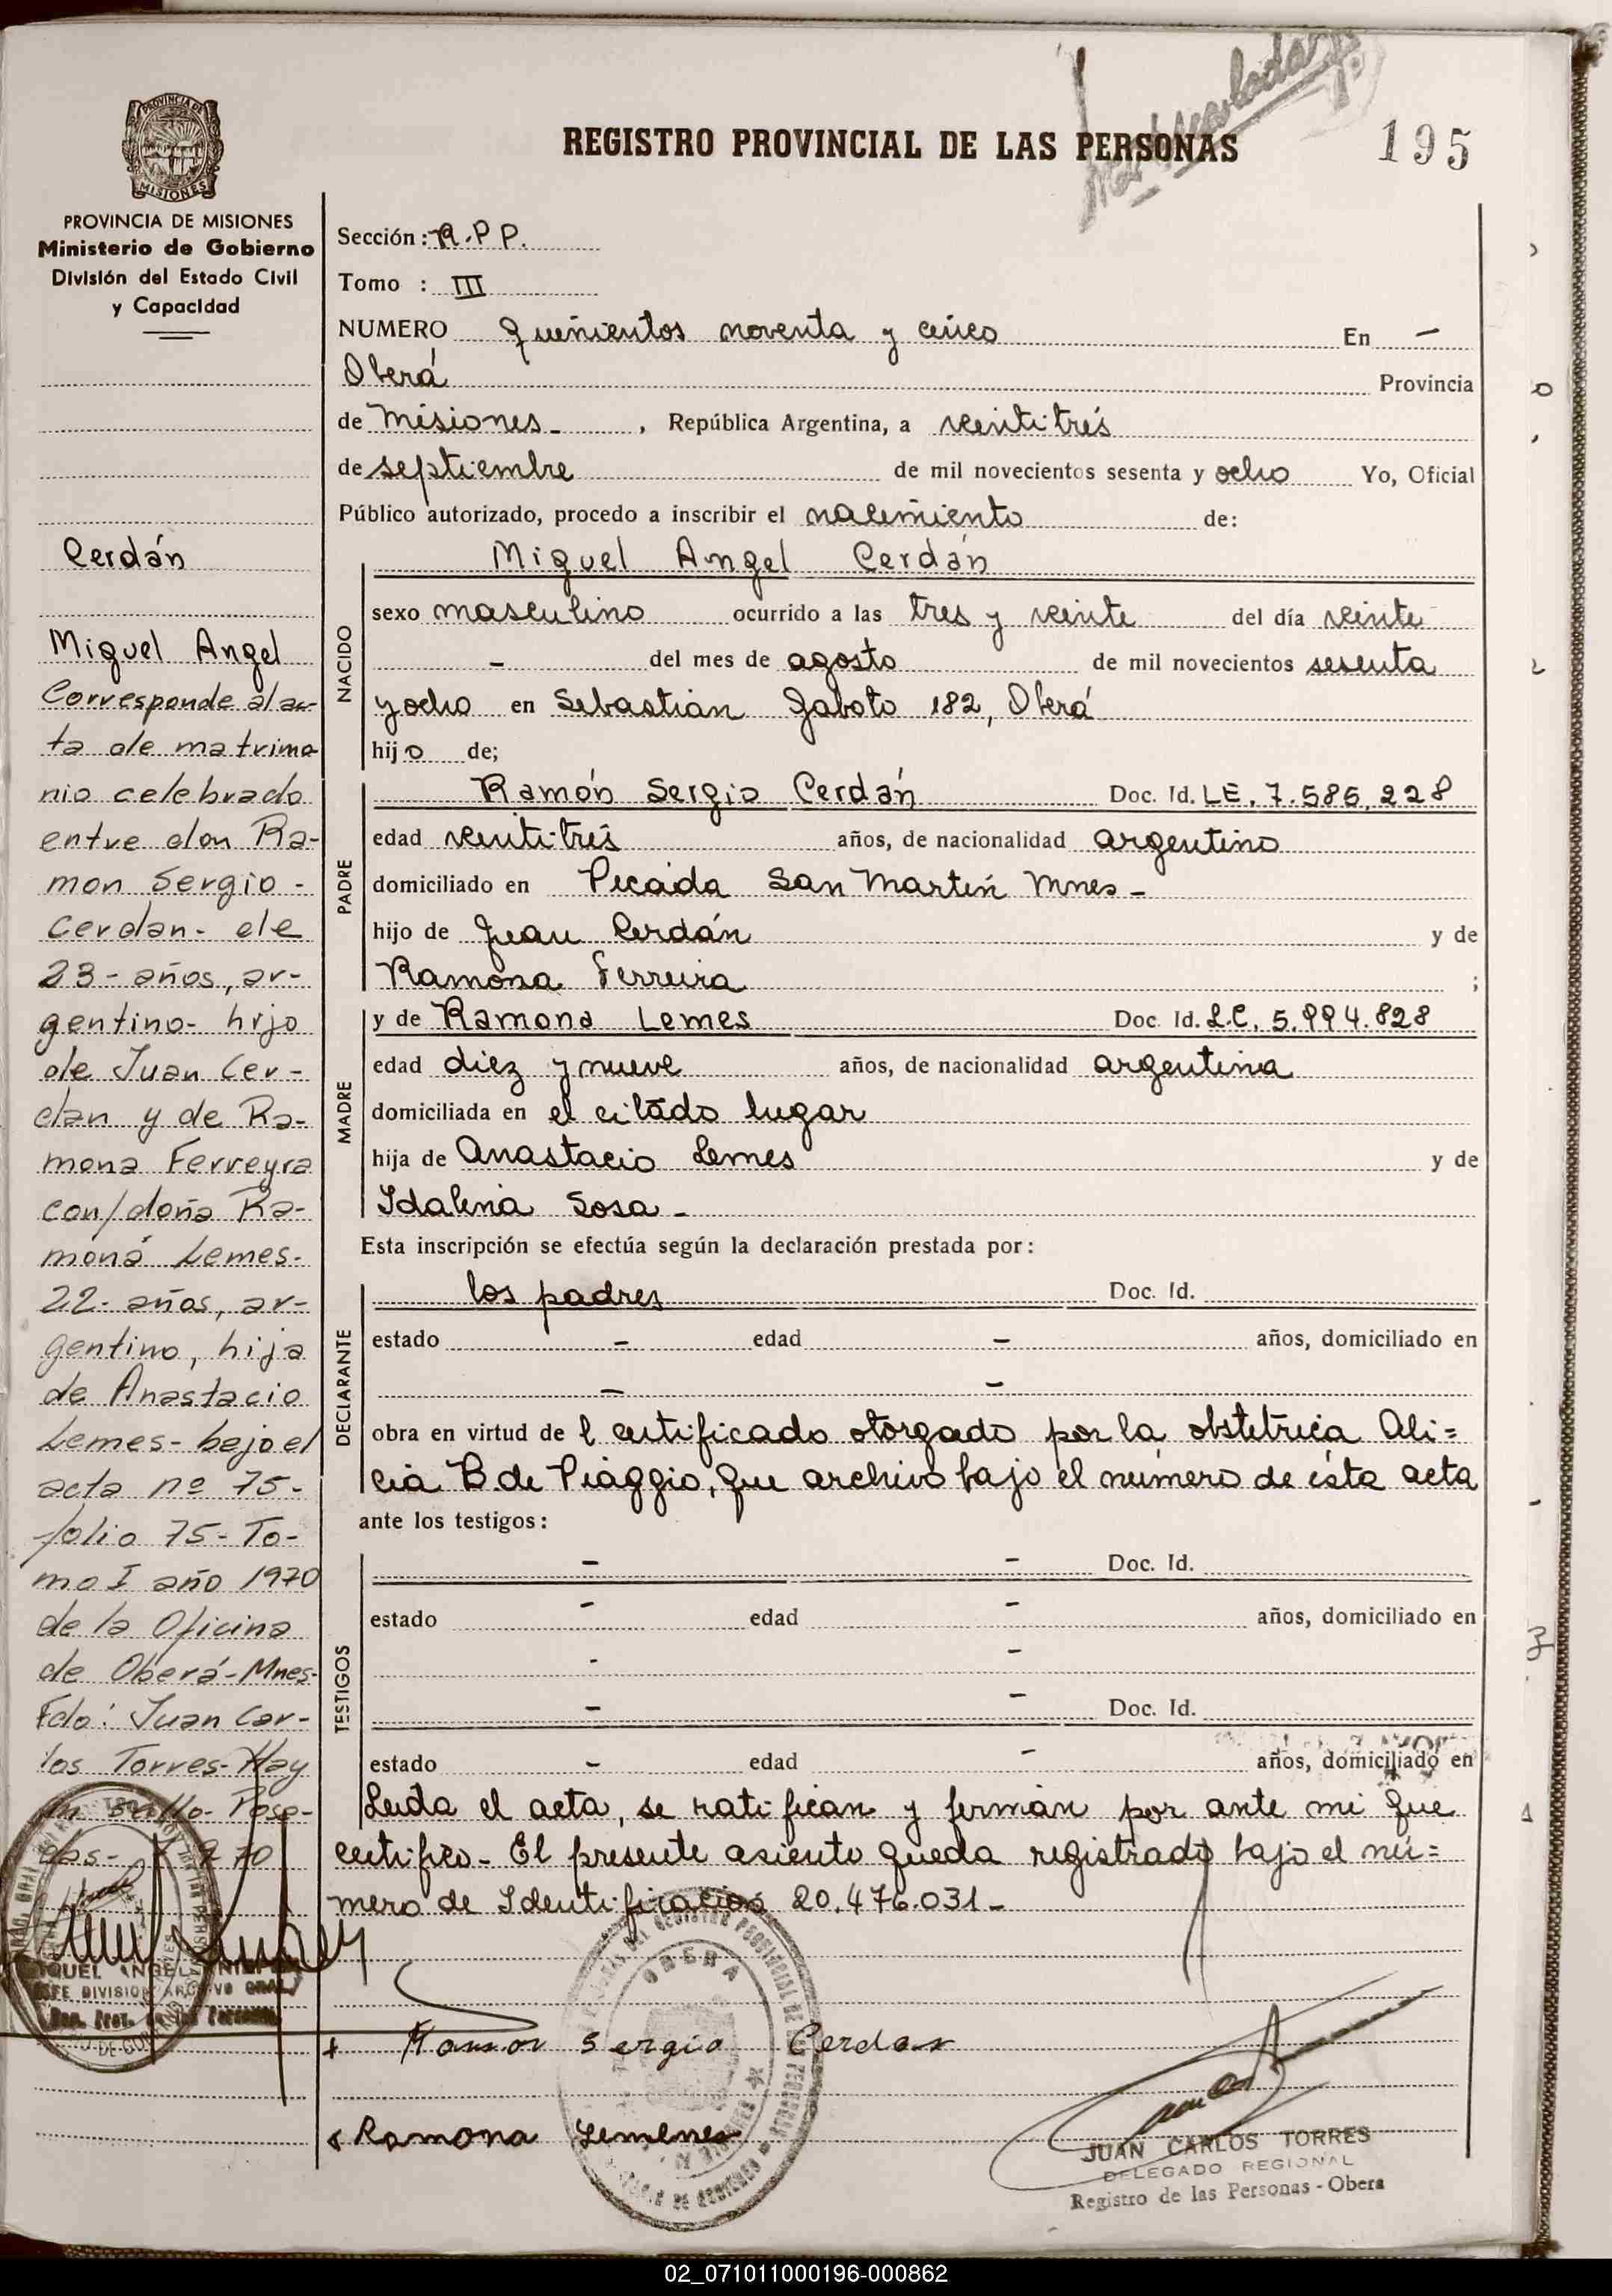 REGISTRO PROVINCIAL DE LAS PERSONAS
195
PROVINCIA DE MISIONES
PROVINCIA DE MISIONES
Ministerio de Gobierno
División del Estado Civil
y Capacidad
Cerdán
Miguel Angel
Corresponde al ac-
ta de matrimo-
nio celebrado
entre don Ra-
mon Sergio -
Cerdan- de
23- años, ar-
gentino- hijo
de Juan Cer-
dan y de Ra-
mona Ferreyra
con/doña Ra-
mona Lemes-
22- años, ar-
gentino, hija
de Anastacio
Lemes- bajo el
acta nº 75-
folio 75- To-
mo I año 1970
de la Oficina
de Oberá-Mnes-
Fdo: Juan Car-
los Torres- Hay
un sello- Posa-
das-
Sección: R.P P.
Tomo : III
NUMERO quinientos noventa y cinco En -
Oberá Provincia
de Misiones - , República Argentina, a veintitrés
de septiembre de mil novecientos sesenta y ocho Yo, Oficial
Público autorizado, procedo a inscribir el nacimiento de:
Miguel Angel Cerdán
NACIDO
sexo masculino ocurrido a las tres y veinte del día veinte
- del mes de agosto de mil novecientos sesenta
y ocho en Sebastián Gaboto 182, Oberá
hijo de;
PADRE
Ramón Sergio Cerdán Doc. Id. LE. 7.585.228
edad veintitrés años, de nacionalidad argentino
domiciliado en Picada San Martín Mnes -
hijo de Juan Cerdán y de
Ramona Ferreira ;
MADRE
y de Ramona Lemes Doc. Id. L.C. 5.994.828
edad diez y nueve años, de nacionalidad argentina
domiciliada en el citado lugar
hija de Anastacio Lemes y de
Idalina Sosa -
Esta inscripción se efectúa según la declaración prestada por:
DECLARANTE
los padres Doc. Id.
estado - edad - años, domiciliado en
- -
obra en virtud de l certificado otorgado por la obstetrica Ali=
cia B. de Piaggio, que archivo bajo el número de ésta acta
ante los testigos:
TESTIGOS
- - Doc. Id.
estado - edad - años, domiciliado en
- -
- - Doc. Id.
estado - edad - años, domiciliado en
Leida el acta, se ratifican y firman por ante mi que
certifico - El presente asiento queda registrado bajo el nú=
mero de Identificación 20.476.031 -
OBERA
Ramon Sergio Cerdan
Ramona
JUAN CARLOS TORRES
DELEGADO REGIONAL
Registro de las Personas - Obera
JEFE DIVISION ARCHIVO GRAL
02_071011000196-000862